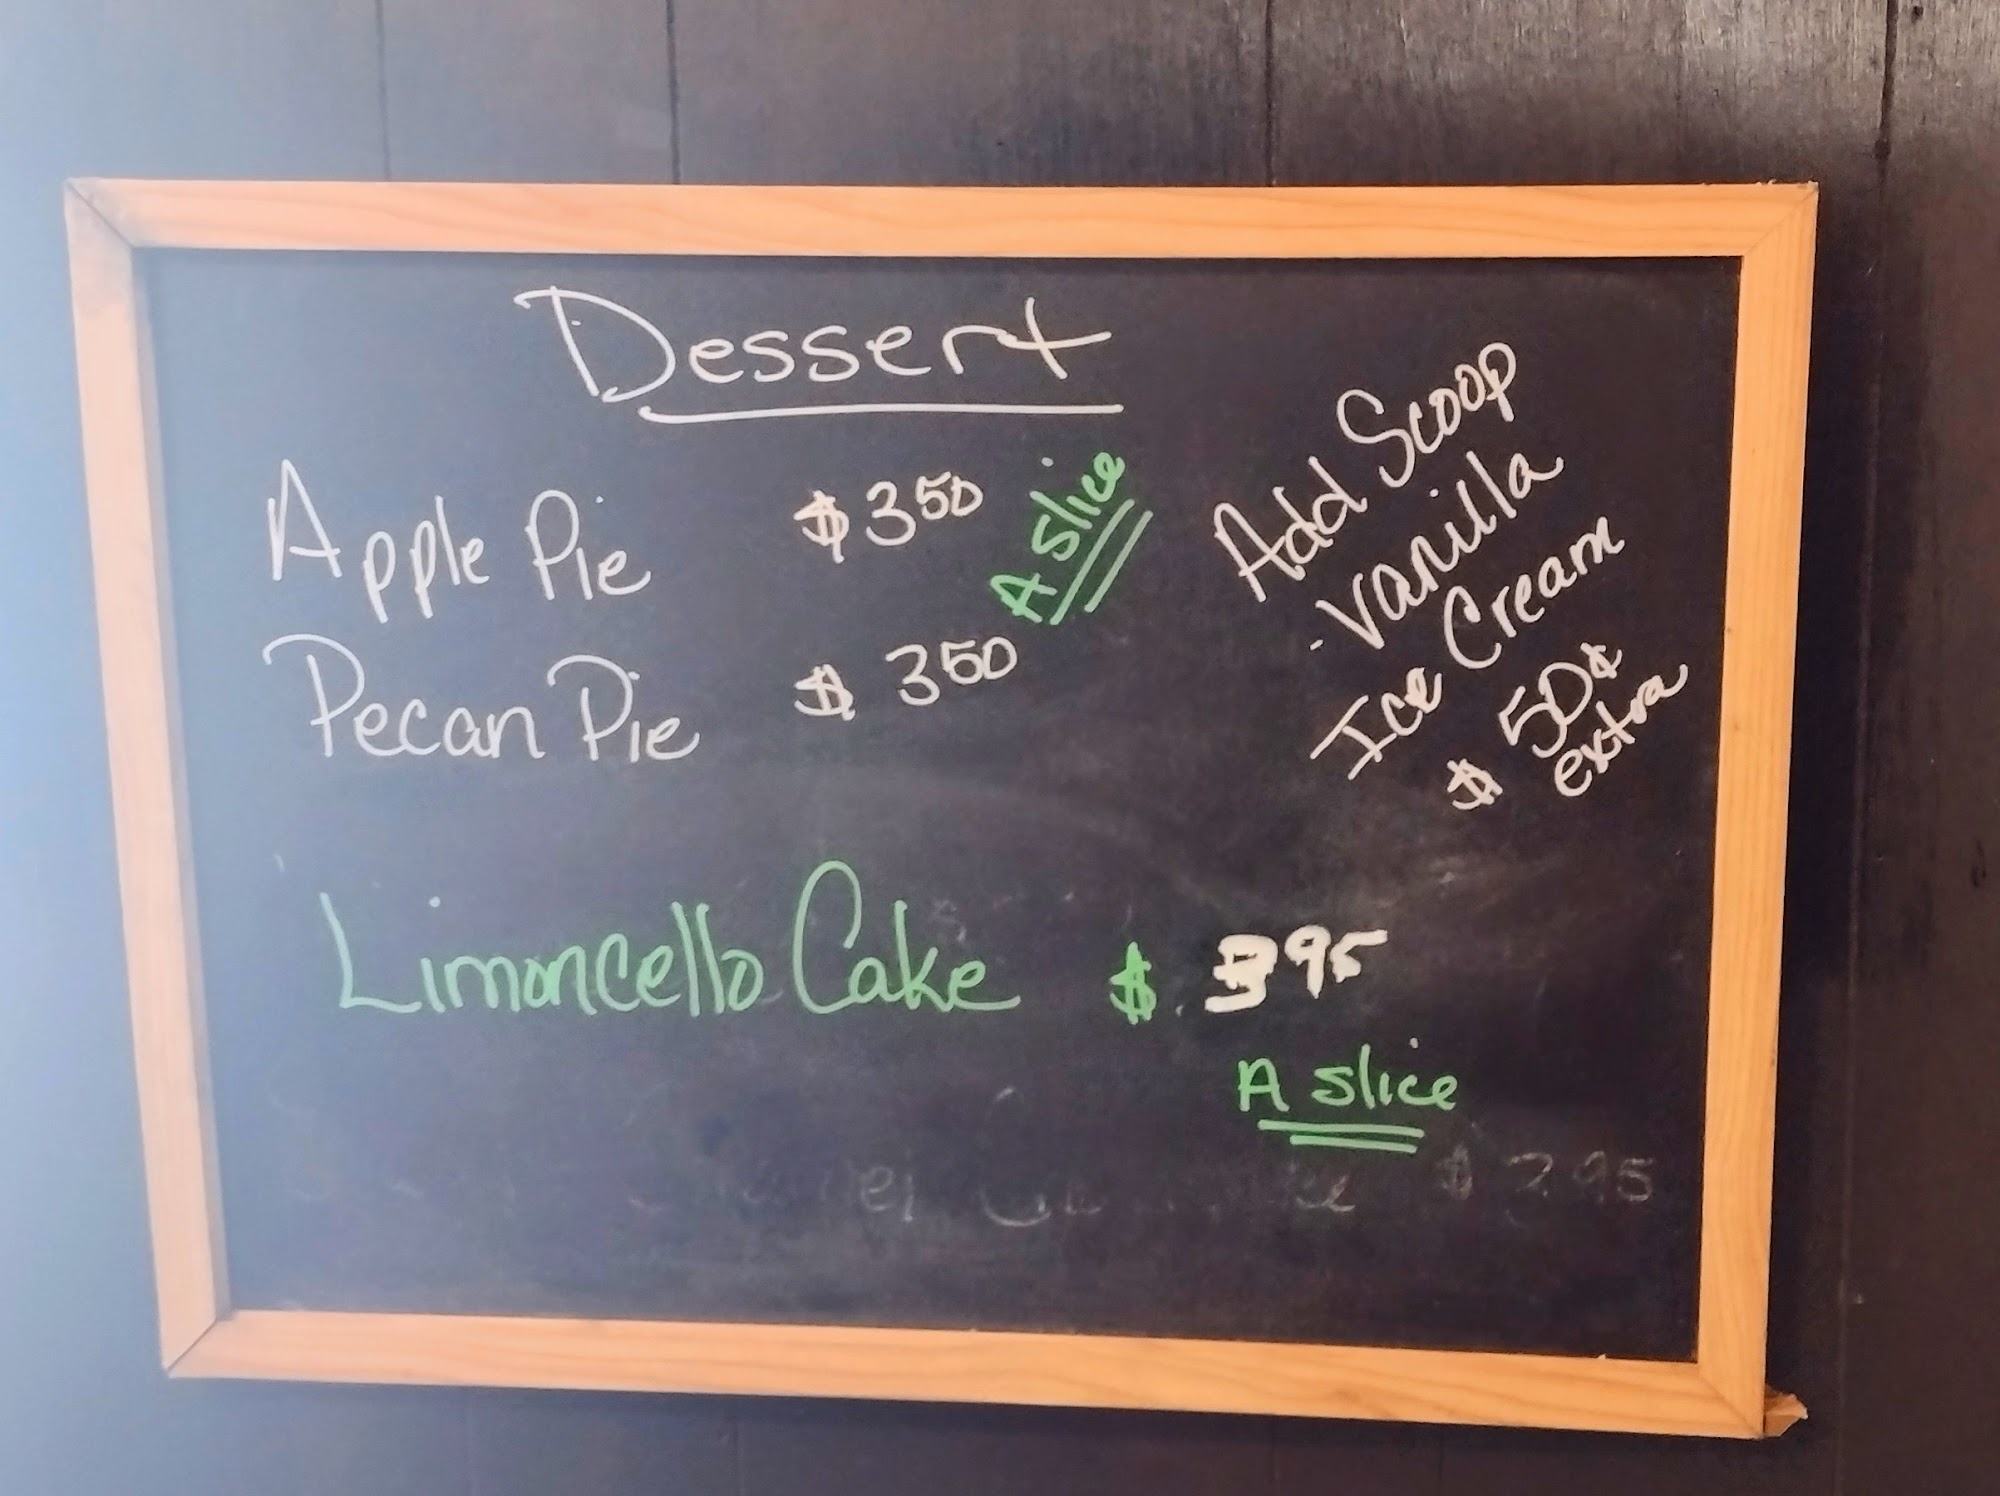 Dessert
Apple Pie $350 A slice
Pecan Pie $350
Add Scoop
vanilla
Ice Cream
$ 50¢
extra
Limoncello Cake $ 395
A slice
$
95